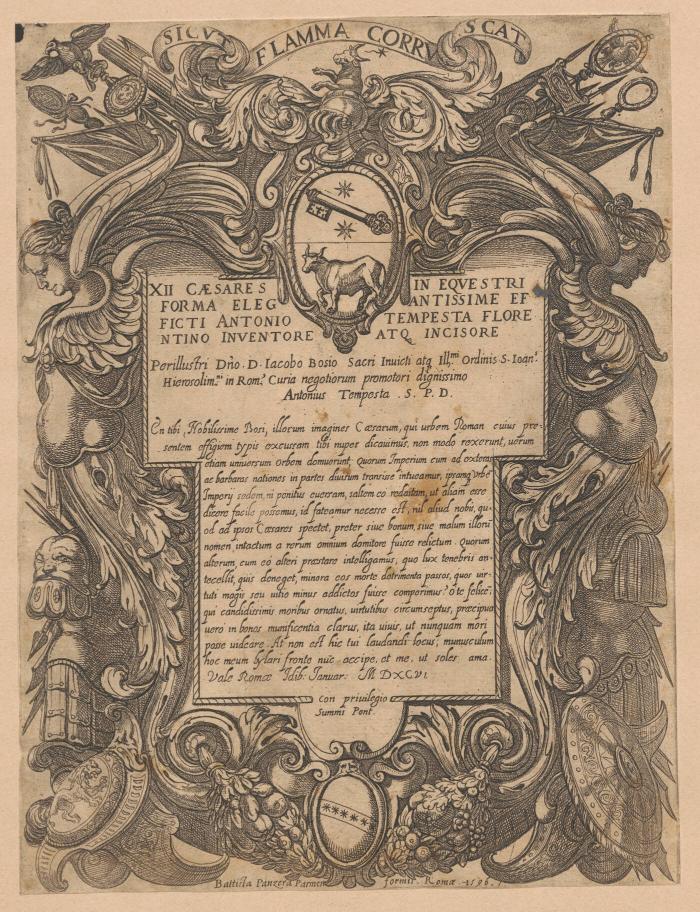 SICVT FLAMMA CORRVSCAT
XII CÆSARES IN EQVESTRI
FORMA ELEGANTISSIME EF
FICTI ANTONIO TEMPESTA FLORE
NTINO INVENTORE ATQ INCISORE
Perillustri Dn̄o. D. Iacobo Bosio Sacri Inuicti atq Ill.mi Ordinis S. Ioan.s
Hierosolim.ni in Rom.a Curia negotiorum promotori dignissimo
Antonius Tempesta . S. P. D.
En tibi, Nobilissime Bosi, illorum imagines Cæsarum, qui urbem Roman cuius pre-
sentem effigiem typis excussam tibi nuper dicauimus, non modo rexerunt, uerum
etiam uniuersum Orbem domuerunt. Quorum Imperium cum ad exteras
ac barbaras nationes in partes diuisum transisse intueamur, ipsamq Vrbē
Impery sedem, ni penitus euersam, saltem eo redactam, ut aliam esse
dicere facile possemus, id fateamur necesse est, nil aliud nobis, qu-
od ad ipsos Cæsares spectet, preter siue bonum, siue malum illorū
nomen, intactum a rerum omnium domitore fuisse relictum. Quorum
alterum cum eo alteri præstare intelligamus, quo lux tenebris an-
tecellit, quis deneget, minora eos morte detrimenta passos, quos uir-
tuti magis seu uitio minus addictos fuisse comperimus? o te felicē,
qui candidissimis moribus ornatus, uirtutibus circumseptus, præcipue
uero in bonos munificentia clarus, ita uiuis, ut nunquam mori
posse uideare. At non est hic tui laudandi locus, munusculum
hoc meum hylari fronte nūc accipe, et me, ut soles ama.
Vale Romæ Idib: Ianuar: M DXCVI.
con priuilegio
Summi Pont.
Battista Panzera Parmen formis. Romæ 1596.